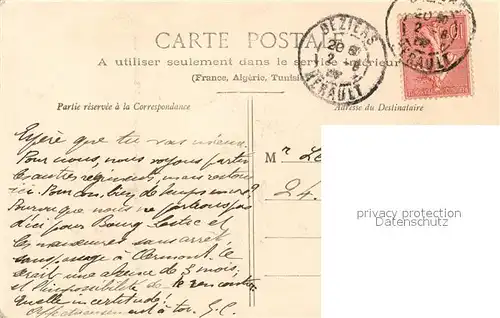 CARTE POSTALE
A utiliser seulement dans le service intérieur
(France, Algérie, Tunisie
BEZIERS
20
2 6
HERAULT
Partie réservée à la Correspondance
Adresse du Destinataire
Espère que tu vas mieux.
Pour nous, nous voyons partir
les autres régiments, mais restons
ici. Pour combien de temps encore?
Pourvu que nous ne partions pas
d'ici pour Bourg Lastic et
les manœuvres sans arrêt,
sans passage à Clermont. Ce
serait une absence de 3 mois,
et l'impossibilité de te rencontrer
Quelle incertitude!
Affectueusement à toi. G.C.
Mr
24.
privacy protection
Datenschutz